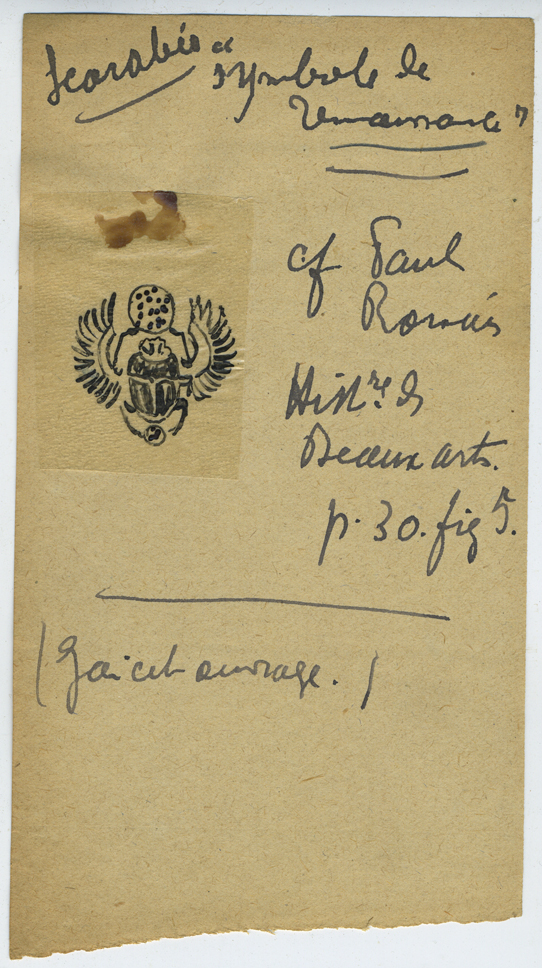 Scarabée "
symbole de
Renaissance"
cf Paul
Rornás
Hist.re des
Beaux arts.
p. 30. fig 5.
(J'ai cet ouvrage.)